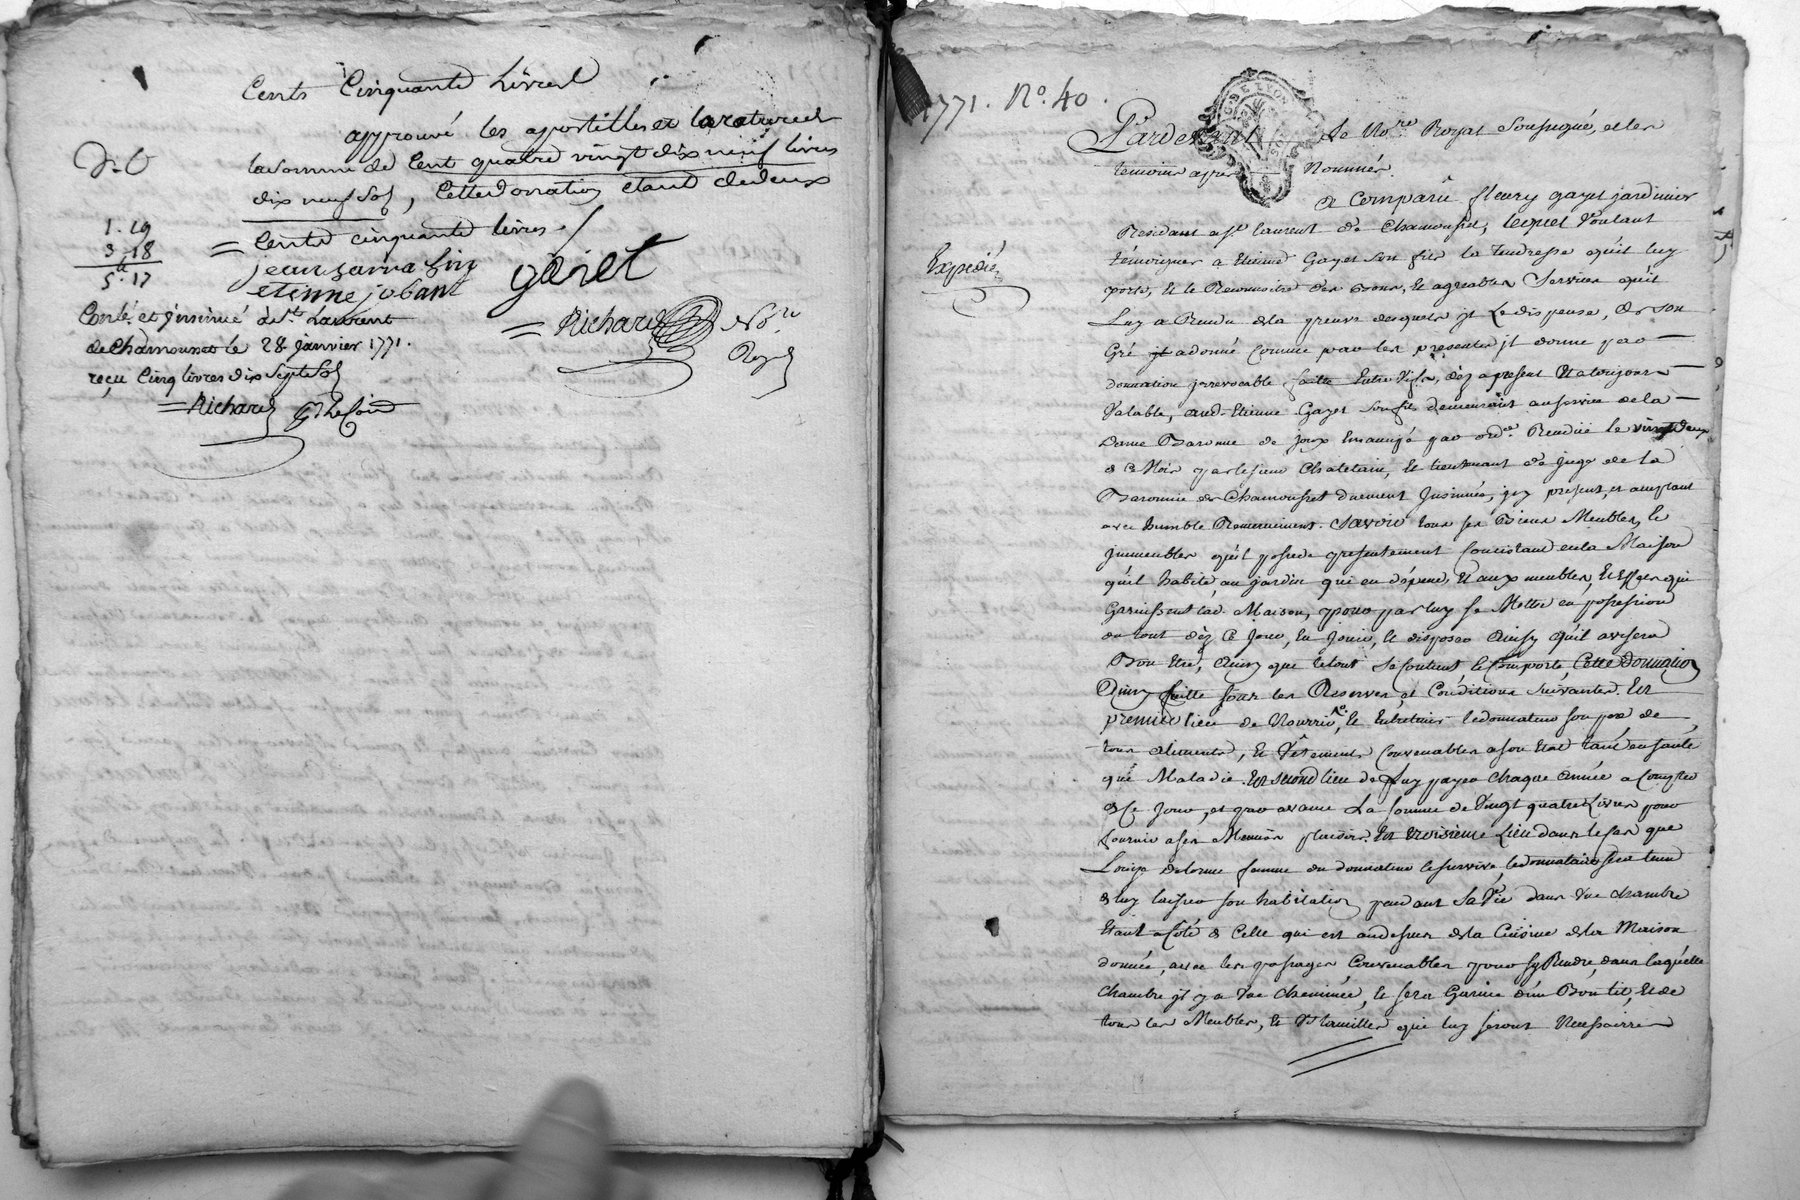 Cents Cinquante Livres
approuvé les apostilles et la rature de
la somme de Cent quatre vingt dix neuf livres
dix neuf sols, Cette donnation etant de deux
= Cents cinquante livres ./
D. O
1. 19
3. 18
5tt. 17
etienne jobant
gariel
= Richard No.re
Royal
Conlé. et jnsinué à St. Laurent
de Chamousset le 28 Janvier 1771.
reçu Cinq livres dix Sept Sols
= Richard
1771. No. 40.
Pardevant le No.re Royal Soussigné, et les
temoins apres Nommés.
G DE LYON
Expedié
a Comparu fleury gayet jardinier
Residant a St. laurent de Chamousset, lequel Voulant
témoigner a Etienne Gayet son fils la tendresse qu'il luy
porte, et le Reconnoitre des bons, et agreables Services qu'il
Luy a Rendu de la preuve desquels jl Le dispense, de son
Gré jl a donné comme par les presentes jl donne par
donnation jrrevocable faitte Entre Vifs, déz a present Et a toujours
Valable, aud. Etienne Gayet son fils demeurant au service de la
Dame Baronne de joux Emancipé par ord.ce Rendüe le vingt deux
de ce Mois par le sieur Chatelain, et lieutenant de juge de la
Baronnie de Chamousset duement Jnsinuée, jcy present, et acceptant
avec humble Remerciment. Savoir tous ses Biens Meubles, et
jmmeubles qu'il possede presentement Consistant en la Maison
qu'il habite, au jardin qui en dépend, Et aux meubles, et Effets qui
Garnissent lad. Maison, pour par luy se Mettre en possession
du tout déz Ce jour, En jouir, et disposer Ainsy qu'il avisera
Bon Etre, Ainsy que le tout se Contient et Comporte Cette donnation
Ainsy faitte sous les Reserves, et Conditions suivantes. En
premier lieu de Nourrir, et Entretenir le donnateur son pere de
tous aliments, et Vêtements Convenables a son Etat tant en santé
que Maladie. En second lieu de Luy payer chaque Année a Compter
de Ce jour, et par avance La somme de Vingt quatre Livres pour
fournir a ses Menus plaisirs. En troisieme Lieu dans le Cas que
Louise Delorme femme du donnateur le survive, le donnataire sera tenu
de luy laisser son habitation pendant Sa Vie dans Une chambre
Etant a Coté de Celle qui est au dessus de la Cuisine de la Maison
donnée, avec les passages Convenables pour s'y Rendre, dans laquelle
chambre jl y a Une cheminée, et sera Garnie d'un Bon lit, Et de
tous les Meubles, et Ustancilles qui luy seront Necessaires